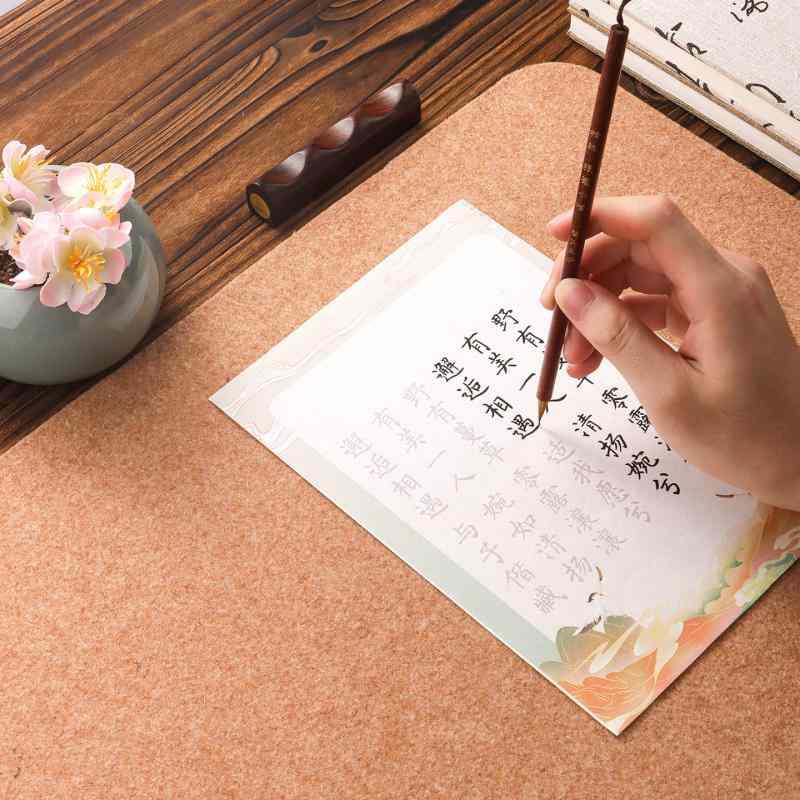 野有草零露
有美一人清扬婉兮
邂逅相遇适我愿兮
野有蔓草零露瀼瀼
有美一人婉如清扬
邂逅相遇与子偕臧